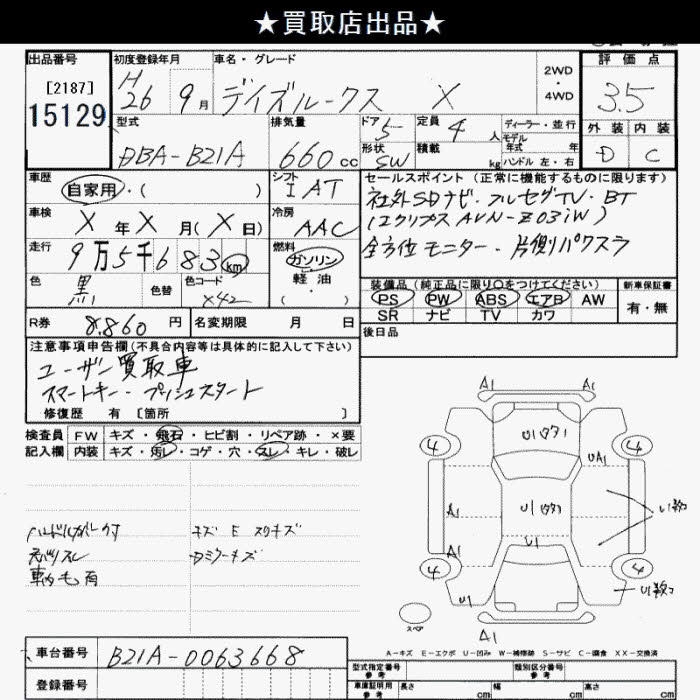 ★買取店出品★
出品番号
[2187]
15129
初度登録年月
H
26 9月
車名・グレード
デイズルークス X
2WD
・
4WD
評価点
3.5
型式
DBA-B21A
排気量
660cc
ドア
5
定員
4人
ディーラー・並行
モデル
年式 年
形状
SW
積載
kg
ハンドル 左・右
外装
D
内装
C
車歴
自家用・( )
シフト
IAT
車検
X年X月(X日)
冷房
AAC
走行
9万5千683km
燃料
ガソリン
軽油
・
( )
色
黒
色替
色コード
X42
セールスポイント (正常に機能するものに限ります)
社外SDナビ・フルセグTV・BT
(エクリプスAVN-Z03iW)
全方位モニター・片側パワスラ
装備品 (純正品に限り○をつけてください)
PS PW ABS エアB AW
SR ナビ TV カワ
新車保証書
有・無
R券 8,860円
名変期限 月 日
後日品
注意事項申告欄(不具合内容等は具体的に記入して下さい)
ユーザー買取車
スマートキー・プッシュスタート
修復歴 有 [箇所 ]
検査員 FW キズ・飛石・ヒビ割・リペア跡・×要
記入欄 内装 キズ・汚レ・コゲ・穴・スレ・キレ・破レ
ハンドルカバー付
キズ E スリキズ
ドアミラーキズ
A1 A1
4 U1 4
UA1
A1 U1
A1 U1
4 4
U1
スペア
A1
A-キズ E-エクボ U-凹み W-補修跡 S-サビ C-腐食 XX-交換済
車台番号 B21A-0063668
登録番号
型式指定番号
参考
類別区分番号
参考
車庫証明用
参考
長さ cm 幅 cm 高さ cm